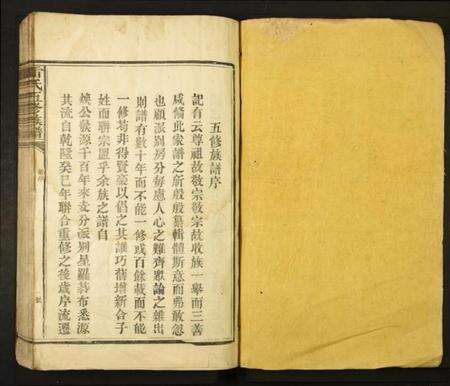 五修族譜序
記有云尊祖故敬宗敬宗故收族一舉而三善
咸備此家譜之所殷殷纂輯體斯意而弗敢忽
也顧派別房分每慮人心之難齊眾論之雜出
則譜有數十年而不能一修或百餘載而不能
一修苟非得賢豪以倡之其誰巧舊增新合子
姓而聯宗盟乎余族之譜自
煥公發源千百年來支分派別星羅碁布悉源
其流自乾隆癸巳年聯合重修之後歲序流遷
氏五修族譜